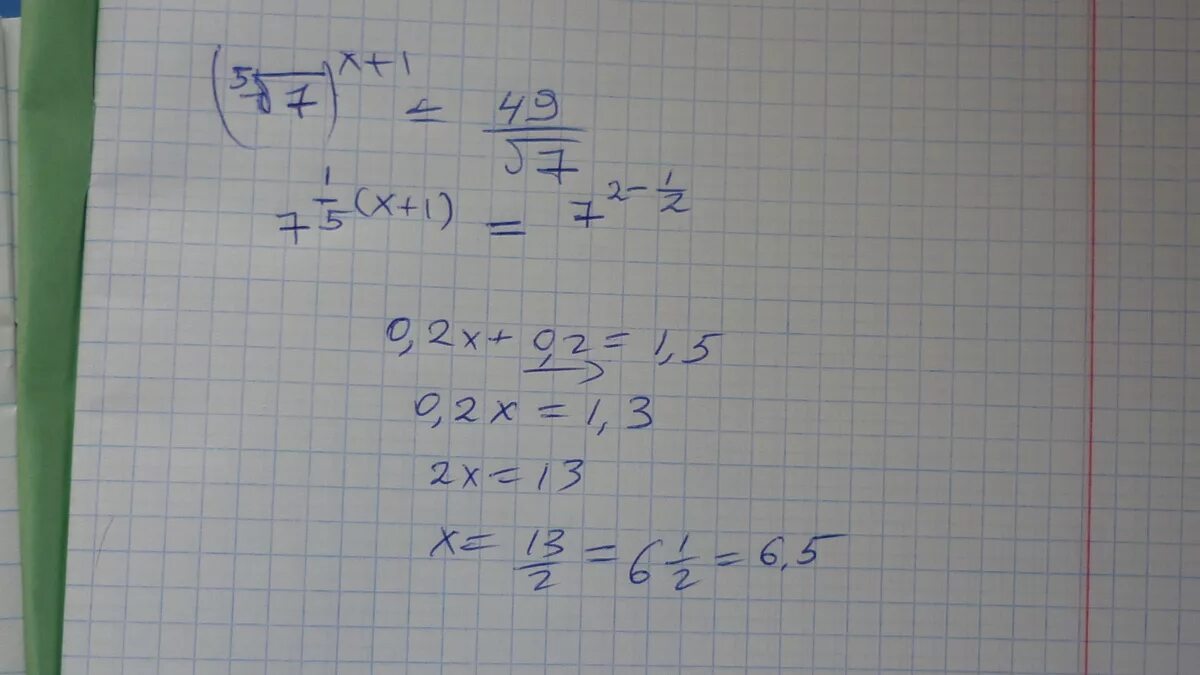 (⁵√7)^(x+1) = 49/√7
7^(1/5 (x+1)) = 7^(2-1/2)
0,2x+ 0,2 = 1,5
0,2x = 1,3
2x = 13
x = 13/2 = 6 1/2 = 6,5